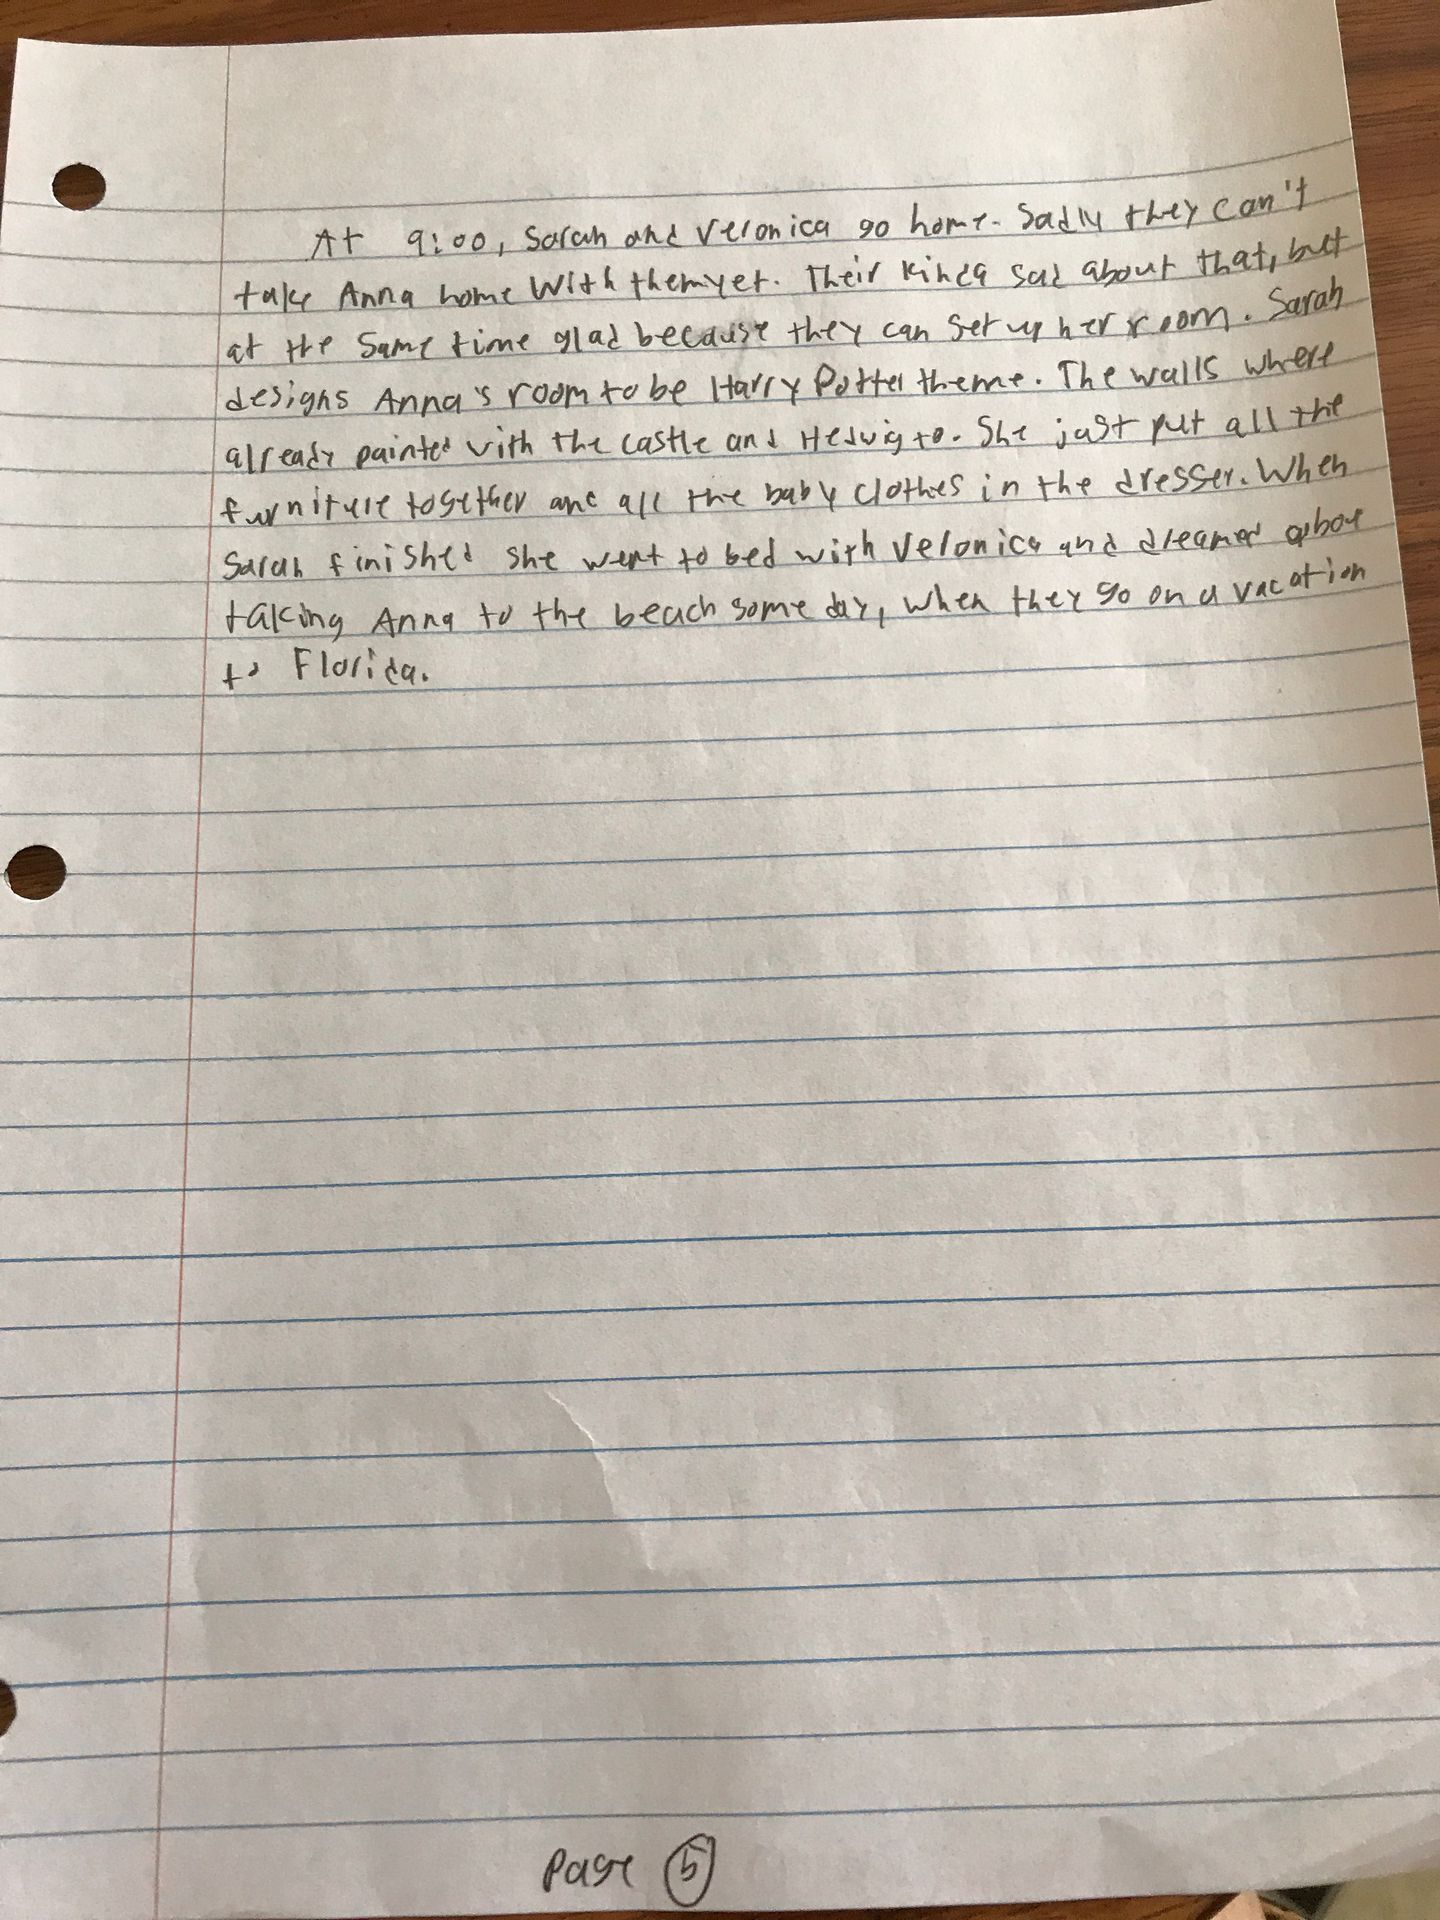 At 9:00, Sarah and Veronica go home. Sadly they can't
take Anna home with them yet. Their kinda sad about that, but
at the same time glad because they can set up her room. Sarah
designs Anna's room to be Harry Potter theme. The walls where
already painted with the castle and Hedwig to. She just put all the
furniture together and all the baby clothes in the dresser. When
Sarah finished she went to bed with Veronica and dreamed about
taking Anna to the beach some day, when they go on a vacation
to Florida.
Page 5